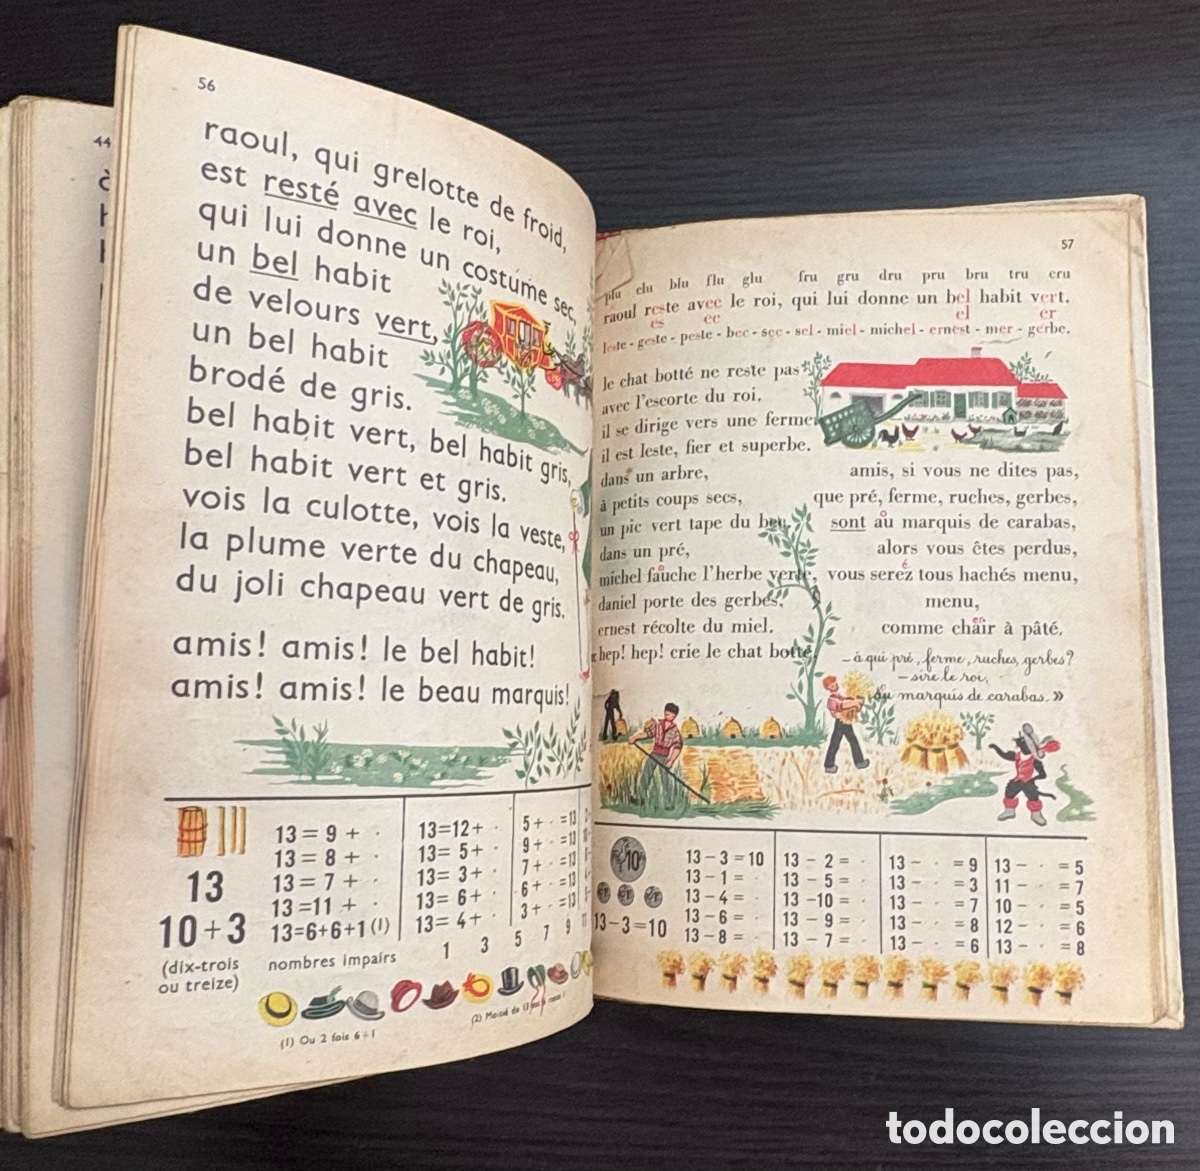 44
56
raoul, qui grelotte de froid,
est resté avec le roi,
qui lui donne un costume sec,
un bel habit
de velours vert,
un bel habit
brodé de gris.
bel habit vert, bel habit gris,
bel habit vert et gris.
vois la culotte, vois la veste,
la plume verte du chapeau,
du joli chapeau vert de gris.
amis! amis! le bel habit!
amis! amis! le beau marquis!
13
10+3
(dix-trois
ou treize)
13 = 9 + ·
13 = 8 + ·
13 = 7 + ·
13 =11 + ·
13=6+6+1 (1)
nombres impairs
13=12+ ·
13= 5+ ·
13= 3+ ·
13= 6+ ·
13= 4+ ·
5+ · =13
9+ · =13
7+ · =13
6+ · =13
3+ · =13
1 3 5 7 9 11
(1) Ou 2 fois 6+1
(2) Moitié de
57
plu clu blu flu glu fru gru dru pru bru tru cru
raoul reste avec le roi, qui lui donne un bel habit vert.
es ec el er
leste - geste - peste - bec - sec - sel - miel - michel - ernest - mer - gerbe.
le chat botté ne reste pas
avec l'escorte du roi.
il se dirige vers une ferme
il est leste, fier et superbe.
dans un arbre,
à petits coups secs,
un pic vert tape du bec,
dans un pré,
michel fauche l'herbe verte,
daniel porte des gerbes,
ernest récolte du miel.
« hep! hep! crie le chat botté,
amis, si vous ne dites pas,
que pré, ferme, ruches, gerbes,
sont au marquis de carabas,
alors vous êtes perdus,
vous serez tous hachés menu,
menu,
comme chair à pâté.
– à qui pré, ferme, ruches, gerbes?
– sire le roi,
au marquis de carabas. »
10
13-3=10
13 - 3 = 10
13 - 1 = ·
13 - 4 = ·
13 - 6 = ·
13 - 8 = ·
13 - 2 = ·
13 - 5 = ·
13 -10 = ·
13 - 9 = ·
13 - 7 = ·
13 - · = 9
13 - · = 3
13 - · = 7
13 - · = 8
13 - · = 6
13 - · = 5
11 - · = 7
10 - · = 5
12 - · = 6
13 - · = 8
todocoleccion